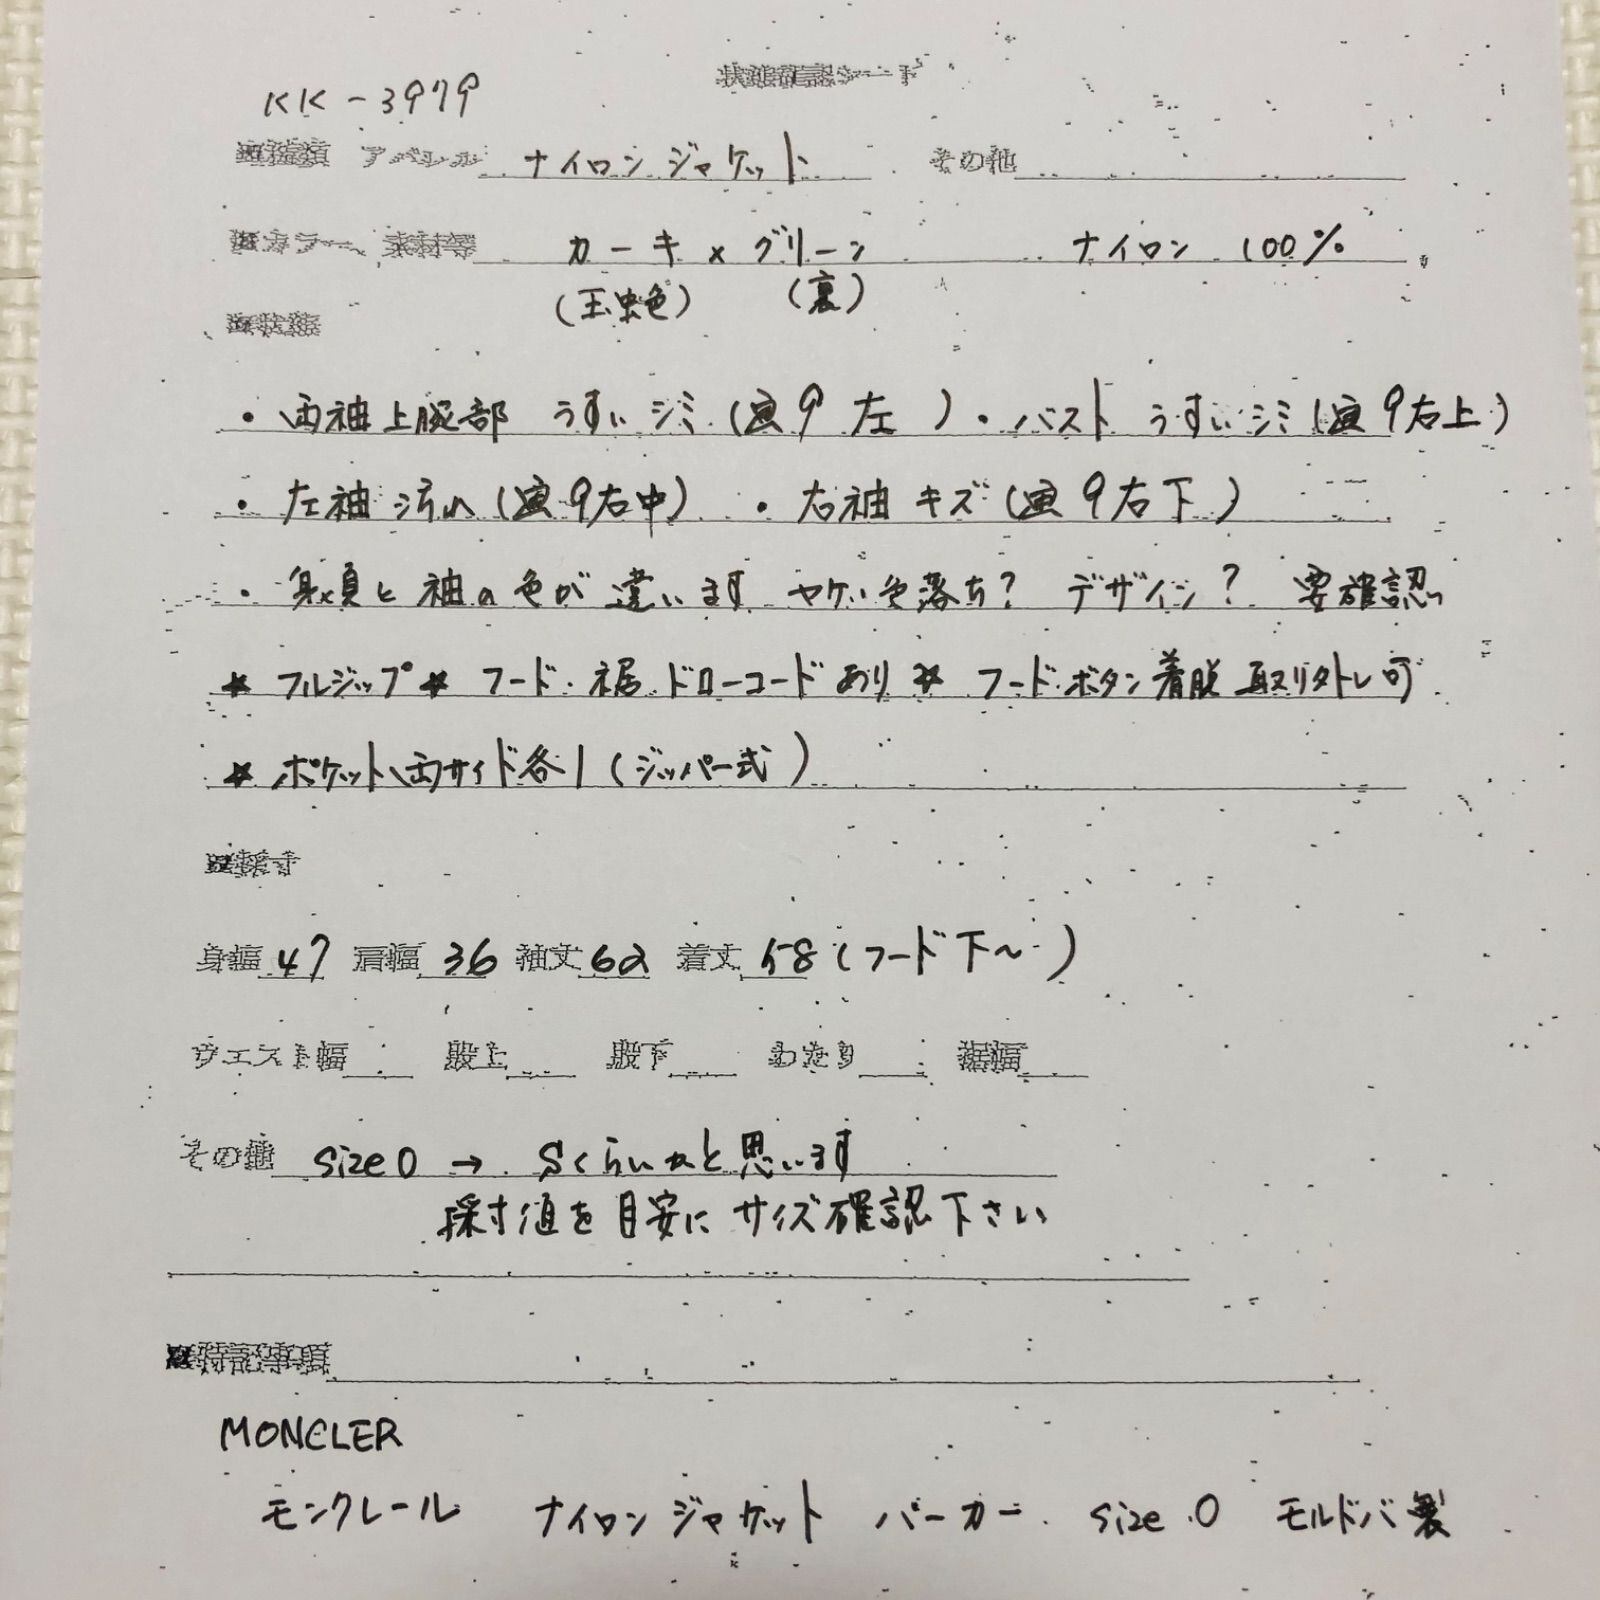 状態確認シート
KK-3979
■種類 アパレル ナイロンジャケット その他
■カラー、素材等 カーキ×グリーン ナイロン 100%
(玉虫色) (裏)
■状態
・両袖上腕部 うすいシミ(画9左)・バスト うすいシミ(画9右上)
・左袖汚れ(画9右中) ・右袖キズ(画9右下)
・身頃と袖の色が違います ヤケ、色落ち? デザイン? 要確認
*フルジップ*フード・裾ドローコードあり*フードボタン着脱 取り外し可
*ポケット両サイド各1(ジッパー式)
■採寸
身幅 47 肩幅 36 袖丈 62 着丈 58(フード下〜)
ウエスト幅 股上 股下 わたり 裾幅
その他 size0→Sくらいかと思います
採寸値を目安にサイズ確認下さい
■特記事項
MONCLER
モンクレール ナイロンジャケット パーカー size.0 モルドバ製